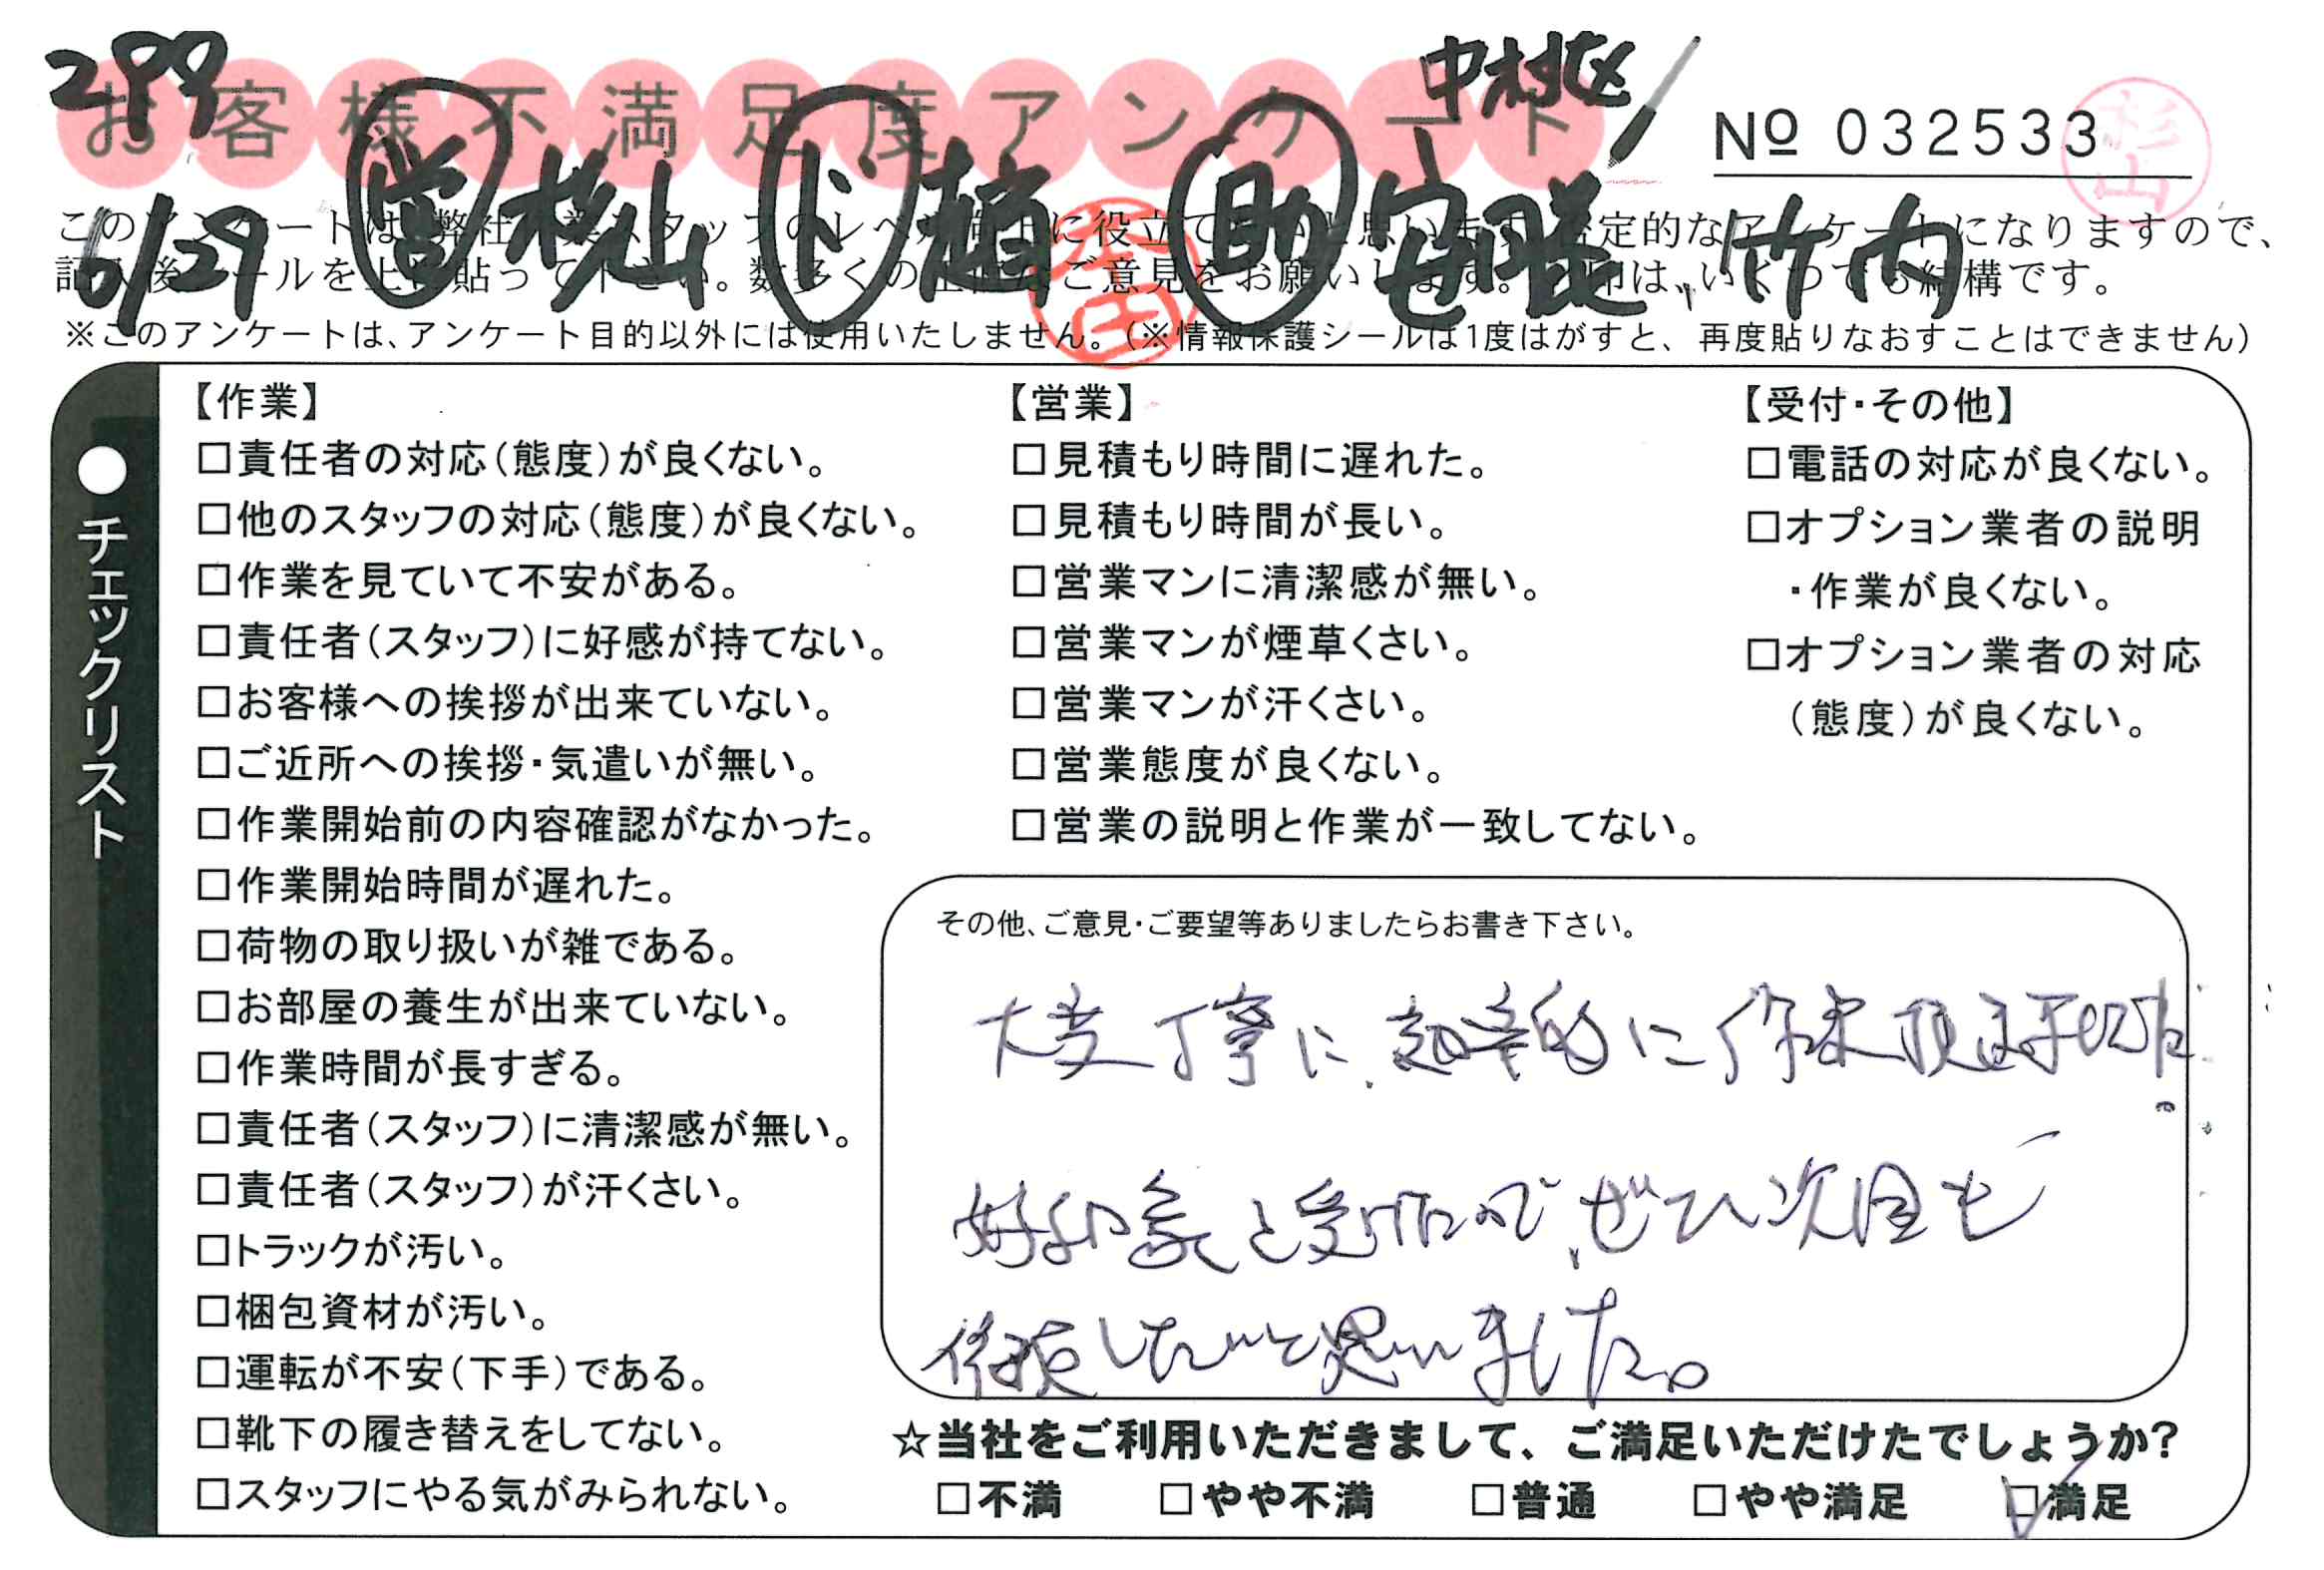 299
中村区
お客様不満足度アンケート
No 032533
杉山
10/29 営 杉山 ド 植 助 安藤、竹内
本田
※このアンケートは、アンケート目的以外には使用いたしません。(※情報保護シールは1度はがすと、再度貼りなおすことはできません)
●チェックリスト
【作業】
□責任者の対応(態度)が良くない。
□他のスタッフの対応(態度)が良くない。
□作業を見ていて不安がある。
□責任者(スタッフ)に好感が持てない。
□お客様への挨拶が出来ていない。
□ご近所への挨拶・気遣いが無い。
□作業開始前の内容確認がなかった。
□作業開始時間が遅れた。
□荷物の取り扱いが雑である。
□お部屋の養生が出来ていない。
□作業時間が長すぎる。
□責任者(スタッフ)に清潔感が無い。
□責任者(スタッフ)が汗くさい。
□トラックが汚い。
□梱包資材が汚い。
□運転が不安(下手)である。
□靴下の履き替えをしてない。
□スタッフにやる気がみられない。
【営業】
□見積もり時間に遅れた。
□見積もり時間が長い。
□営業マンに清潔感が無い。
□営業マンが煙草くさい。
□営業マンが汗くさい。
□営業態度が良くない。
□営業の説明と作業が一致してない。
【受付・その他】
□電話の対応が良くない。
□オプション業者の説明
・作業が良くない。
□オプション業者の対応
(態度)が良くない。
その他、ご意見・ご要望等ありましたらお書き下さい。
大変丁寧に、効率的に作業頂きました。
好印象を受けたので、ぜひ次回も
依頼したいと思いました。
☆当社をご利用いただきまして、ご満足いただけたでしょうか?
□不満 □やや不満 □普通 □やや満足 ☑満足